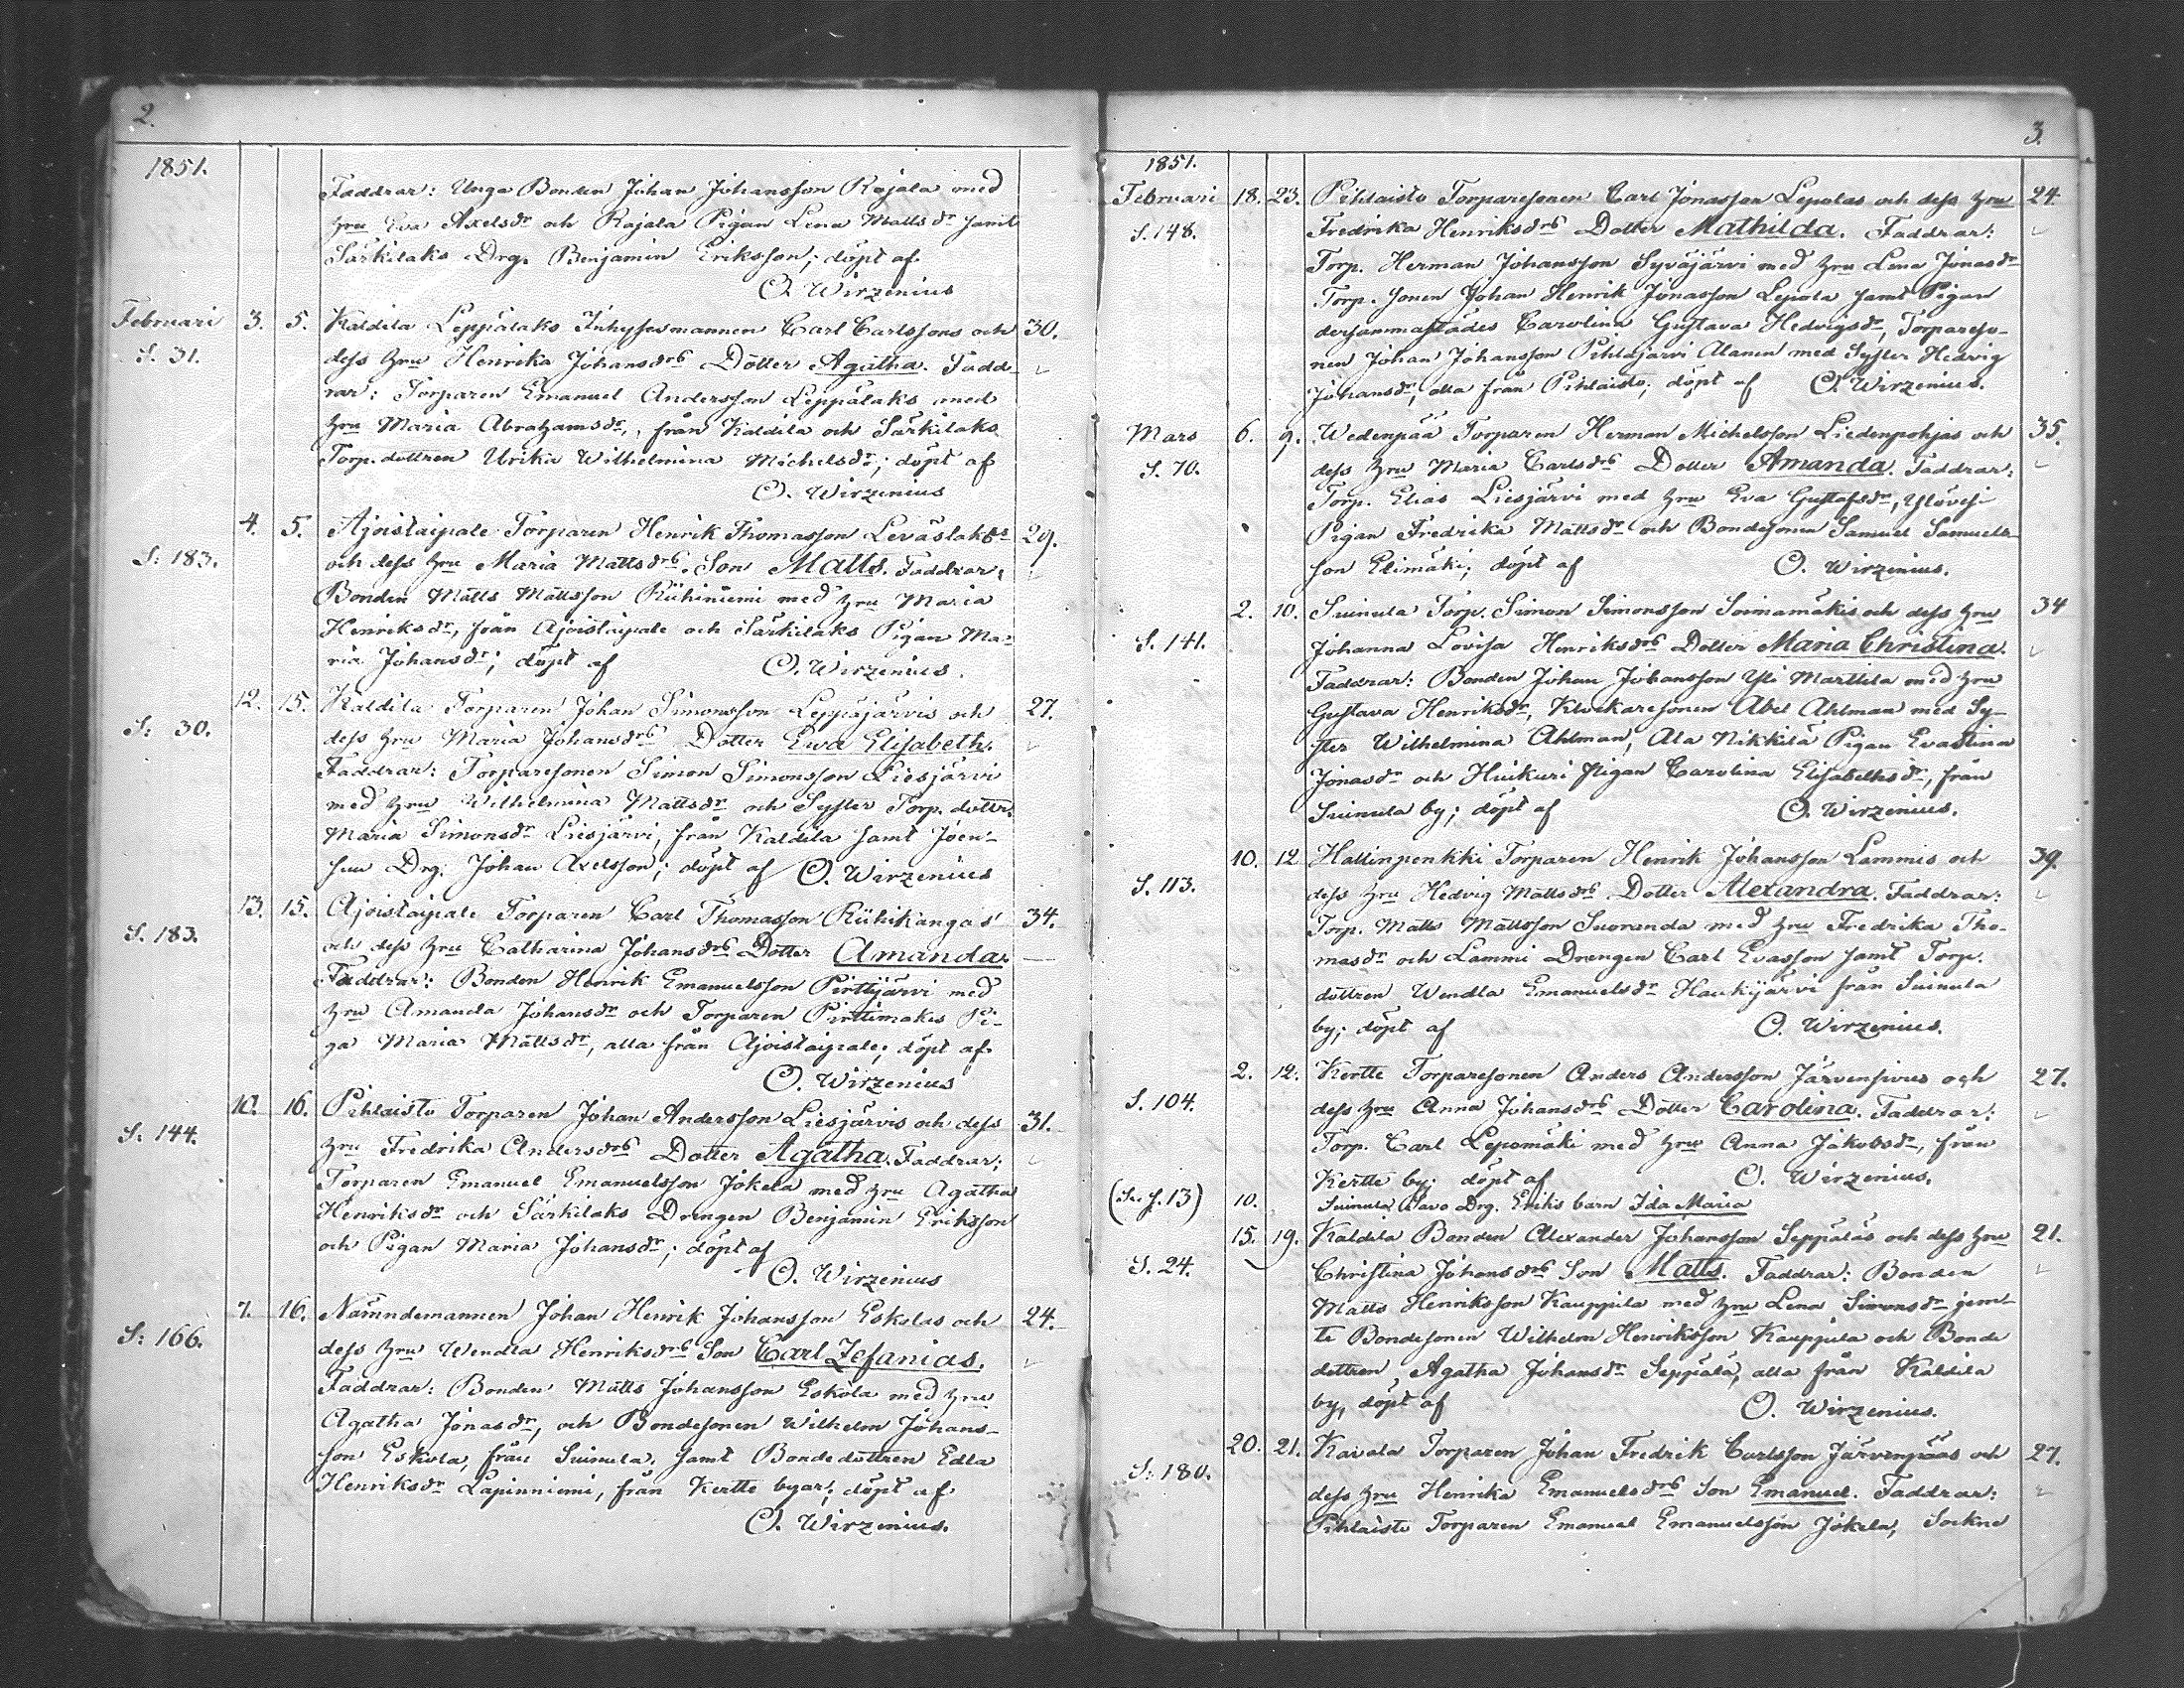 2.
1851.
Faddrar: Unga Bonden Johan Johansson Rajala med
hru Eva Axelsdr och Rajala Pigan Lena Mattsdr samt
Särkilaks Drg. Benjamin Eriksson; döpt af
O. Wirzenius
Februari 3. 5. Kaldila Leppälaks Inhysesmannen Carl Carlssons och 30.
S. 31. dess hru Henrika Johansdrs Dotter Agatha. Fadd-
rar: Torparen Emanuel Andersson Leppälaks med
hru Maria Abrahamsdr, från Kaldila och Särkilaks
Torp. dottren Ulrika Wilhelmina Michelsdr; döpt af
O. Wirzenius
4. 5. Ajoistaipale Torparen Henrik Thomasson Leväslaks 29.
S: 183. och dess hru Maria Mattsdrs Son Matts. Faddrar:
Bonden Matts Mattsson Riihiniemi med hru Maria
Henriksdr, från Ajoistaipale och Särkilaks Pigan Ma-
ria Johansdr; döpt af O. Wirzenius.
12. 15. Kaldila Torparen Johan Simonsson Leppäjärvis och 27.
S: 30. dess hru Maria Johansdrs Dotter Ewa Elisabeth.
Faddrar: Torparesonen Simon Simonsson Liesjärvi
med hru Wilhelmina Mattsdr och Syster Torp. dottr.
Maria Simonsdr Liesjärvi, från Kaldila samt Joen-
suu Drg. Johan Axelsson; döpt af O. Wirzenius
13. 15. Ajoistaipale Torparen Carl Thomasson Riihikangas' 34.
S. 183. och dess hru Catharina Johansdrs Dotter Amanda.
Faddrar: Bonden Henrik Emanuelsson Pirttijärvi med
hru Amanda Johansdr och Torparen Pirttimäkis Pi-
ga Maria Mattsdr, alla från Ajoistaipale; döpt af
O. Wirzenius
10. 16. Pihlaisto Torparen Johan Andersson Liesjärvis och dess 31.
S: 144. hru Fredrika Andersdrs Dotter Agatha. Faddrar:
Torparen Emanuel Emanuelsson Jokela med hru Agatha
Henriksdr och Särkilaks Drengen Benjamin Eriksson
och Pigan Maria Johansdr; döpt af
O. Wirzenius
7. 16. Nämndemannen Johan Henrik Johansson Eskolas och 24.
S: 166. dess hru Wendla Henriksdrs Son Carl Zefanias.
Faddrar: Bonden Matts Johansson Eskola med hru
Agatha Jonasdr, och Bondesonen Wilhelm Johans-
son Eskola, från Suinula, samt Bondedottren Edla
Henriksdr Lapinniemi, från Kertte byar; döpt af
O. Wirzenius.
3.
1851.
Februari 18. 23. Pihlaisto Torparesonen Carl Jonasson Lepolas och dess hru 24.
S. 148. Fredrika Henriksdrs Dotter Mathilda. Faddrar:
Torp. Herman Johansson Syväjärvi med hru Lena Jonasdr
Torp. sonen Johan Henrik Jonasson Lepola samt Pigan
dersammastädes Carolina Gustava Hedvigsdr, Torpareso-
nen Johan Johansson Pihlajärvi Alanen med Syster Hedvig
Johansdr, alla från Pihlaisto; döpt af O. Wirzenius.
Mars 6. 9. Wedenpää Torparen Herman Michelsson Liedenpohjas och 35.
S. 70. dess hru Maria Carlsdrs Dotter Amanda. Faddrar:
Torp. Elias Liesjärvi med hru Eva Gustafsdr, Ylövesi
Pigan Fredrika Mattsdr och Bondesonen Samuel Samuels-
son Elimäki; döpt af O. Wirzenius.
2. 10. Suinula Torp. Simon Simonsson Soimamäkis och dess hru 34
S. 141. Johanna Lovisa Henriksdrs Dotter Maria Christina.
Faddrar: Bonden Johan Johansson Yli Marttila med hru
Gustava Henriksdr, Klockaresonen Abel Ahlman med Sy-
ster Wilhelmina Ahlman, Ala Nikkilä Pigan Evastina
Jonasdr och Huikuri Pigan Carolina Elisabethsdr, från
Suinula by; döpt af O. Wirzenius.
10. 12 Hallinpenkki Torparen Henrik Johansson Lammis och 39.
S. 113. dess hru Hedvig Mattsdrs Dotter Alexandra. Faddrar:
Torp. Matts Mattsson Suoranda med hru Fredrika Tho-
masdr och Lammi Drengen Carl Evasson samt Torp.
dottren Wendla Emanuelsdr Haukijärvi från Suinula
by; döpt af O. Wirzenius.
2. 12. Kertte Torparesonen Anders Andersson Järvensivus och 27.
S. 104. dess hru Anna Johansdrs Dotter Carolina. Faddrar:
Torp. Carl Lepomäki med hru Anna Jakobsdr, från
Kertte by; döpt af O. Wirzenius.
(Se s. 13) 10. Suinula Savo Drg. Eriks barn Ida Maria
15. 19. Kaldila Bonden Alexander Johansson Seppäläs och dess hru 21.
S. 24. Christina Johansdrs Son Matts. Faddrar: Bonden
Matts Henriksson Kauppila med hru Lena Simonsdr jem-
te Bondesonen Wilhelm Henriksson Kauppila och Bonde
dottren Agatha Johansdr Seppälä, alla från Kaldila
by, döpt af O. Wirzenius.
20. 21. Kaivala Torparen Johan Fredrik Carlsson Järvenpääs och 27.
S: 180. dess hru Henrika Emanuelsdrs Son Emanuel. Faddrar:
Pihlaisto Torparen Emanuel Emanuelsson Jokela, Sockne